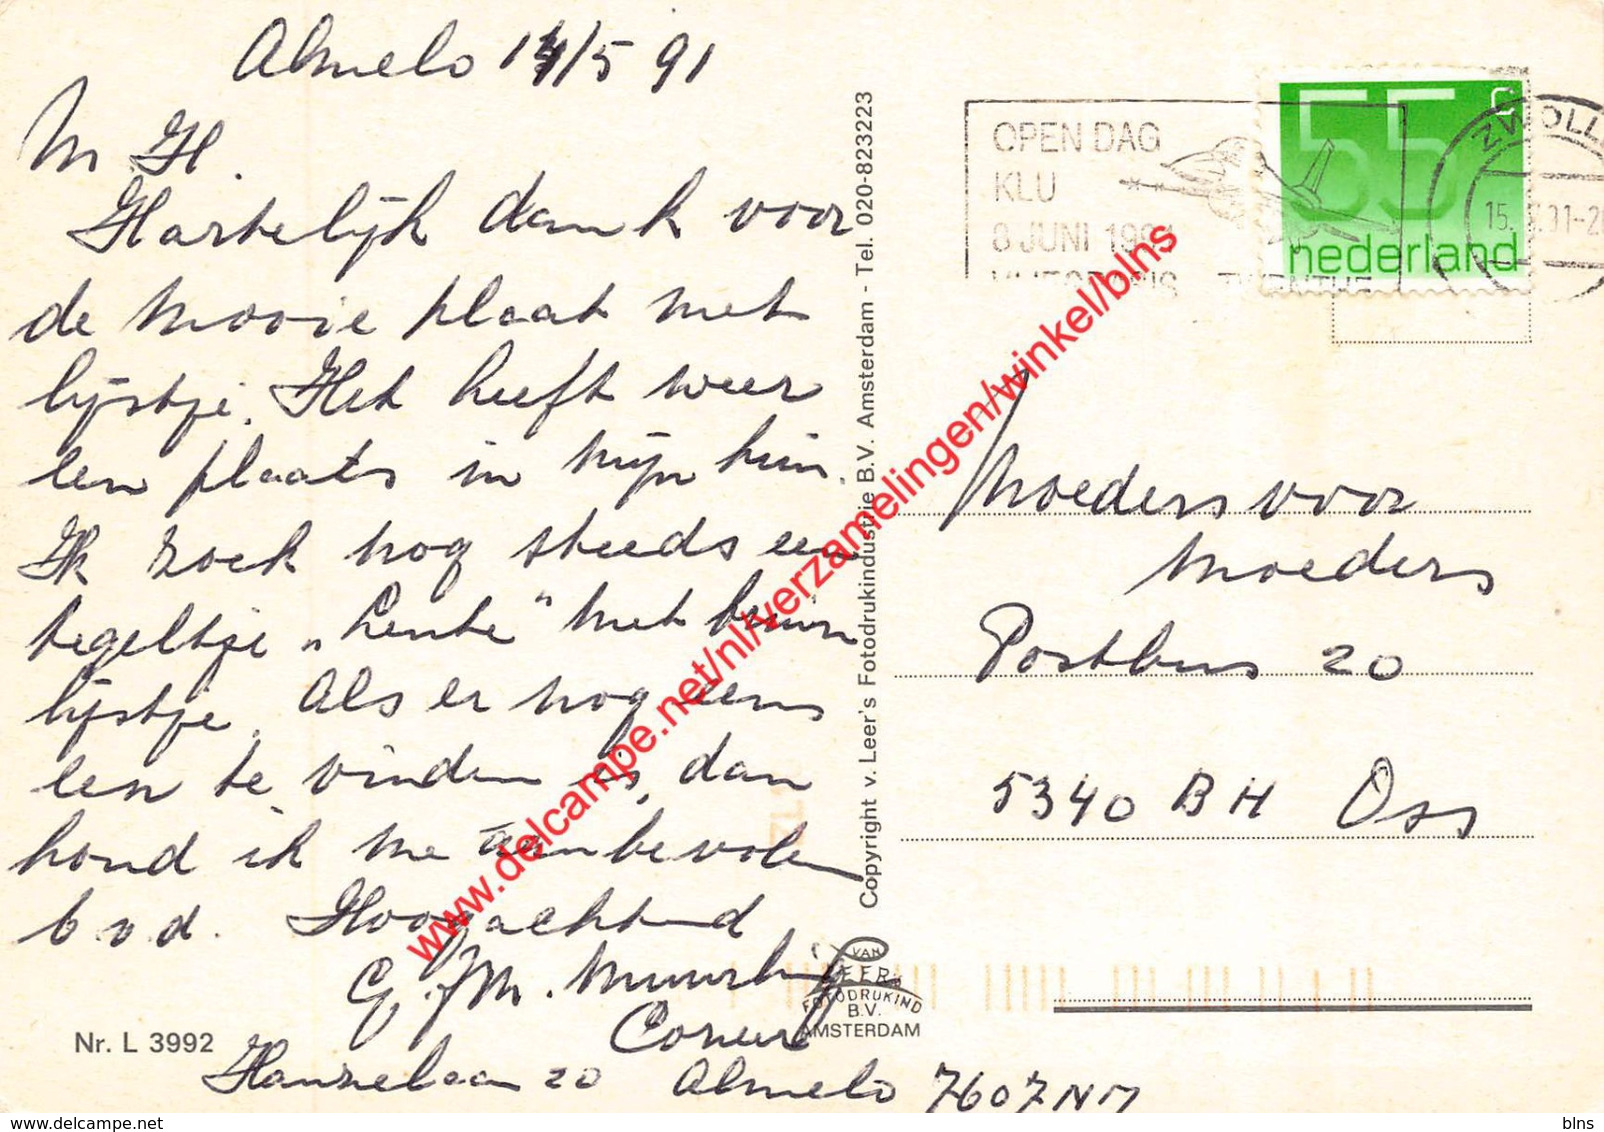 Almelo 14/5 91
M. H.
Hartelijk dank voor
de mooie plaat met
lijstje. Het heeft weer
een plaats in mijn huis.
Ik zoek nog steeds een
tegeltje „Lente" met bruin
lijstje. Als er nog eens
een te vinden is, dan
houd ik me aanbevolen
b.v.d. Hoogachtend
G. JM.
Hanzelaan 20 Almelo 7607NM
Nr. L 3992
Copyright v. Leer's Fotodrukindustrie B.V. Amsterdam - Tel. 020-823223
VAN
LEER's
FOTODRUKIND
B.V.
AMSTERDAM
OPEN DAG
KLU
8 JUNI 1991
55 c
nederland
ZWOLLE
Moeders voor
Moeders
Postbus 20
5340 BH Oss
www.delcampe.net/nl/verzamelingen/winkel/blns
www.delcampe.net
blns